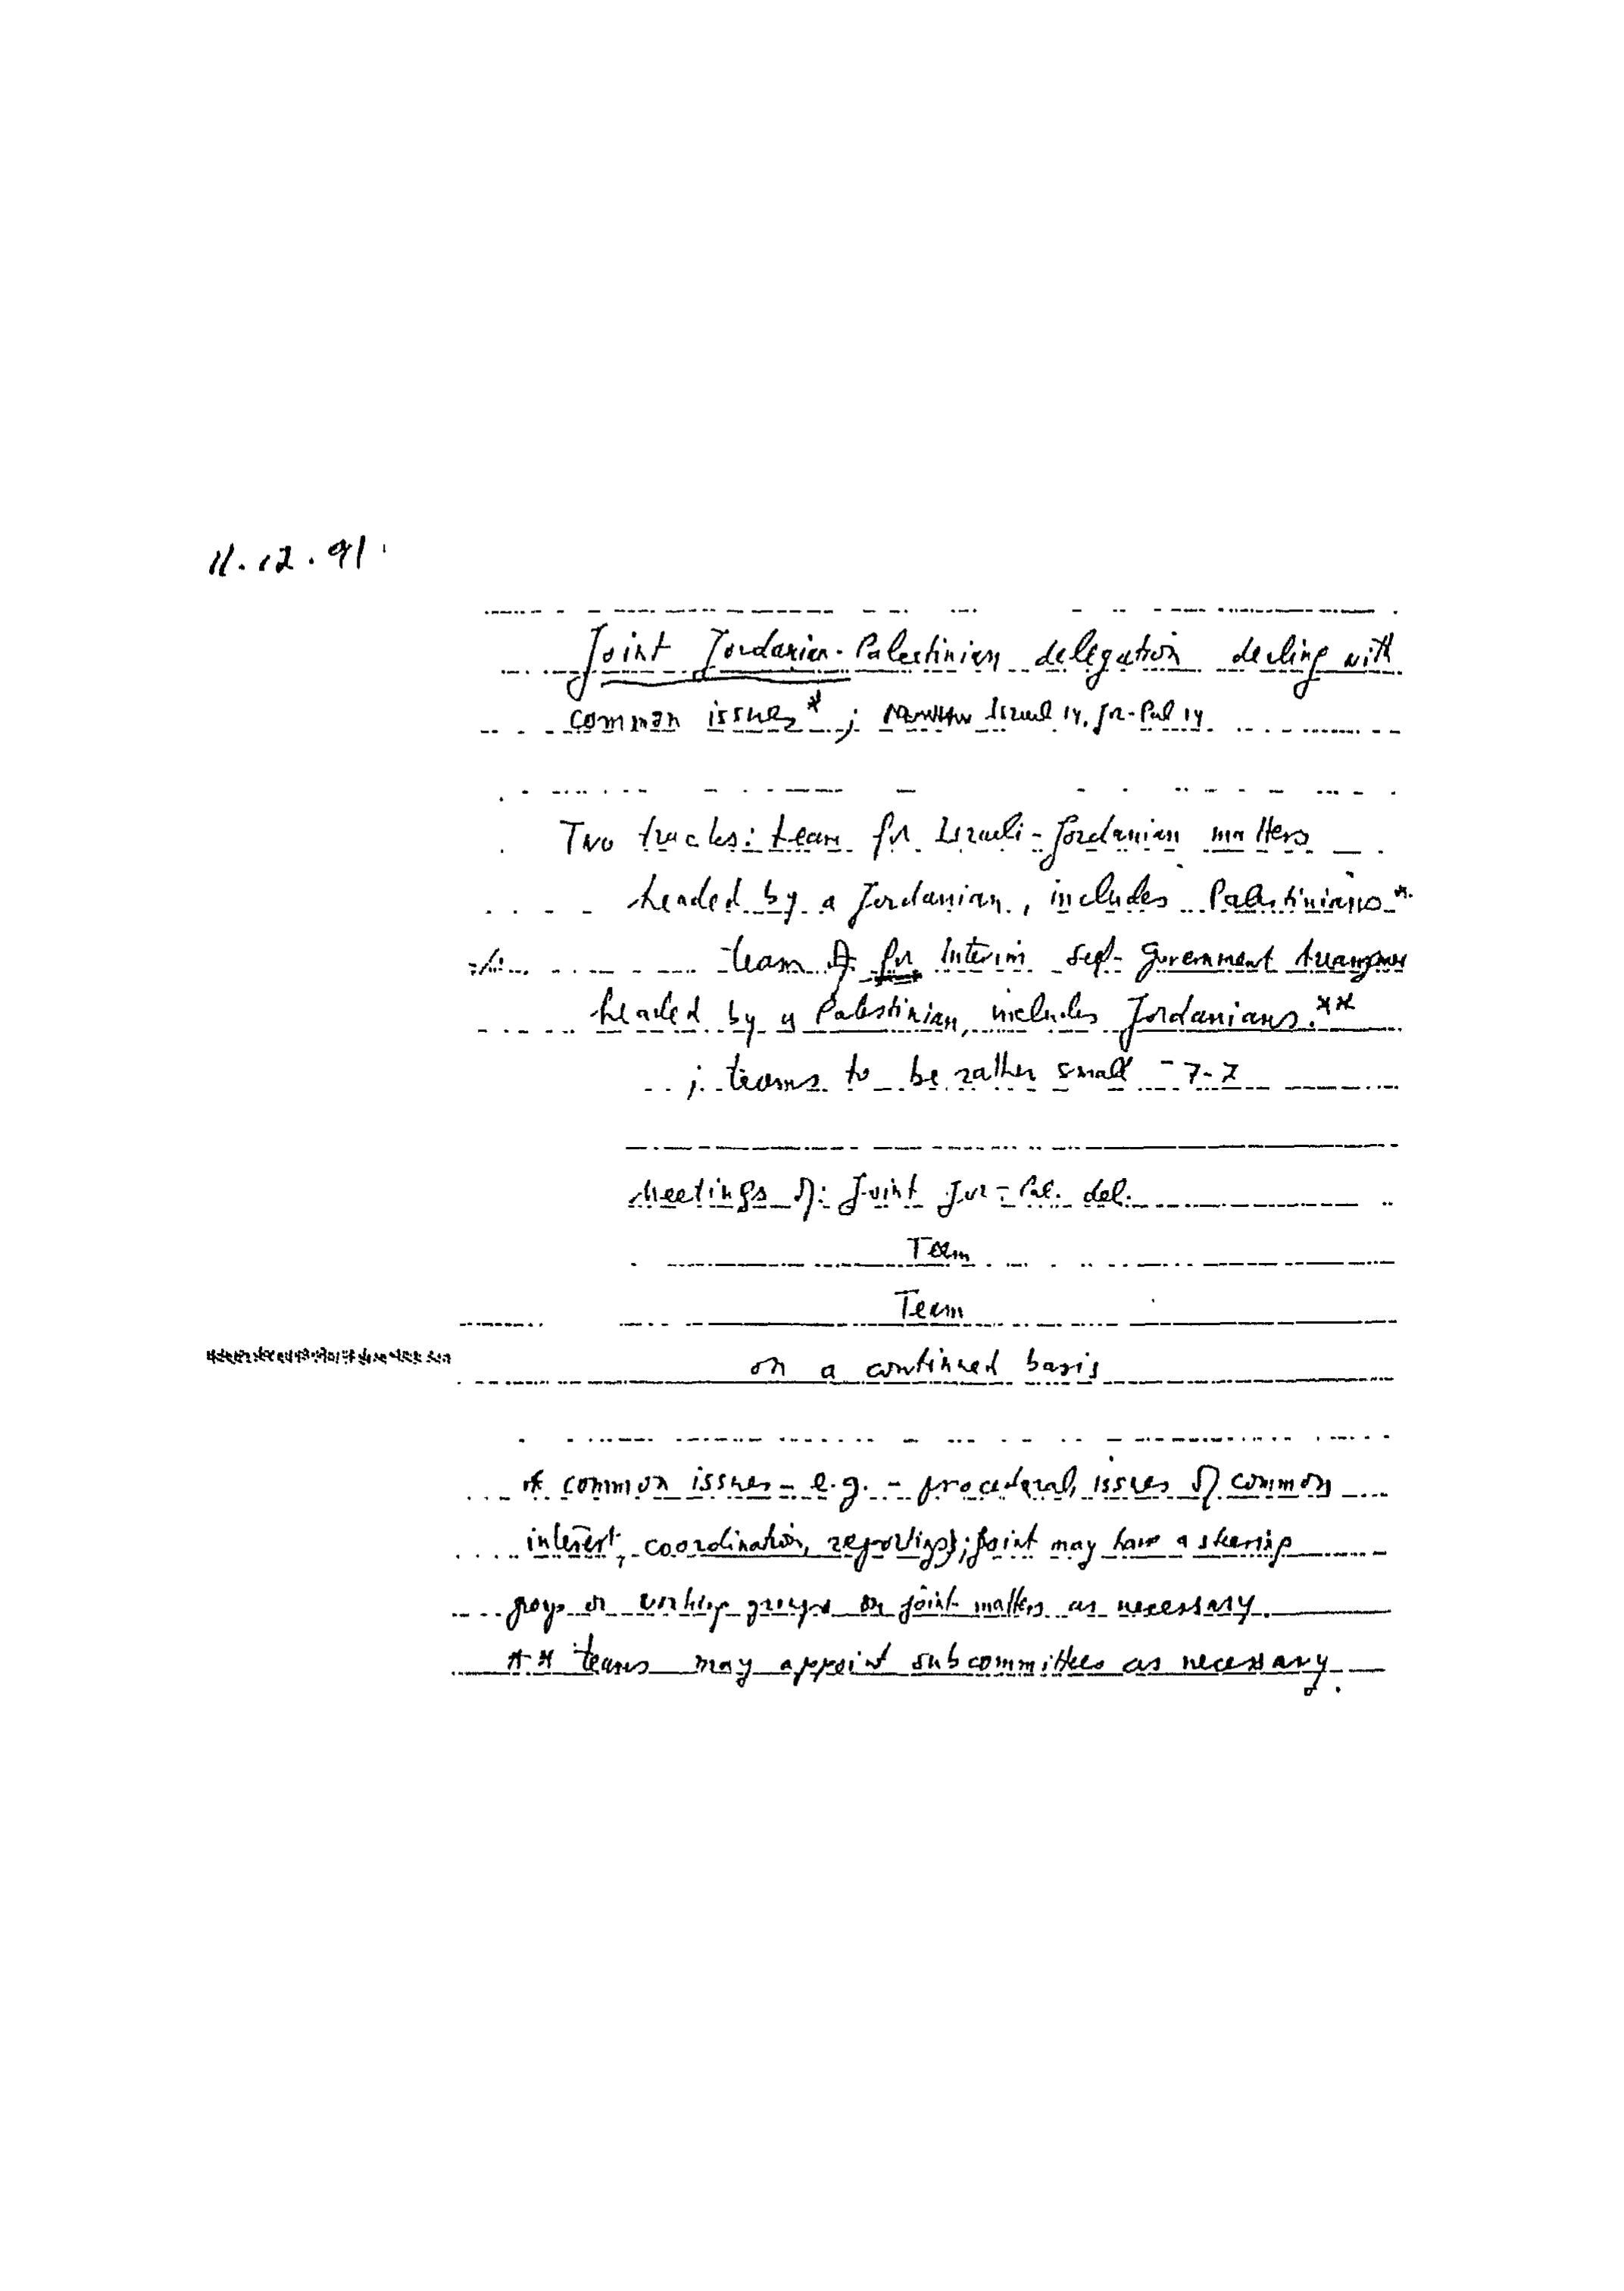 11.12.91
Joint Jordanian-Palestinian delegation dealing with
common issues*; Israel 14, Jr-Pal 14
Two tracks: team for Israeli-Jordanian matters
headed by a Jordanian, includes Palestinians*
team for Interim Self-Government
headed by a Palestinian, includes Jordanians.**
; teams to be rather small - 7-7
Meetings of: Joint Jor-Pal. del.
Team
Team
on a continued basis
* common issues - e.g. - procedural, issues of common
interest, coordination, reporting; joint may have a steering
group or working groups on joint matters as necessary.
** teams may appoint subcommittees as necessary.